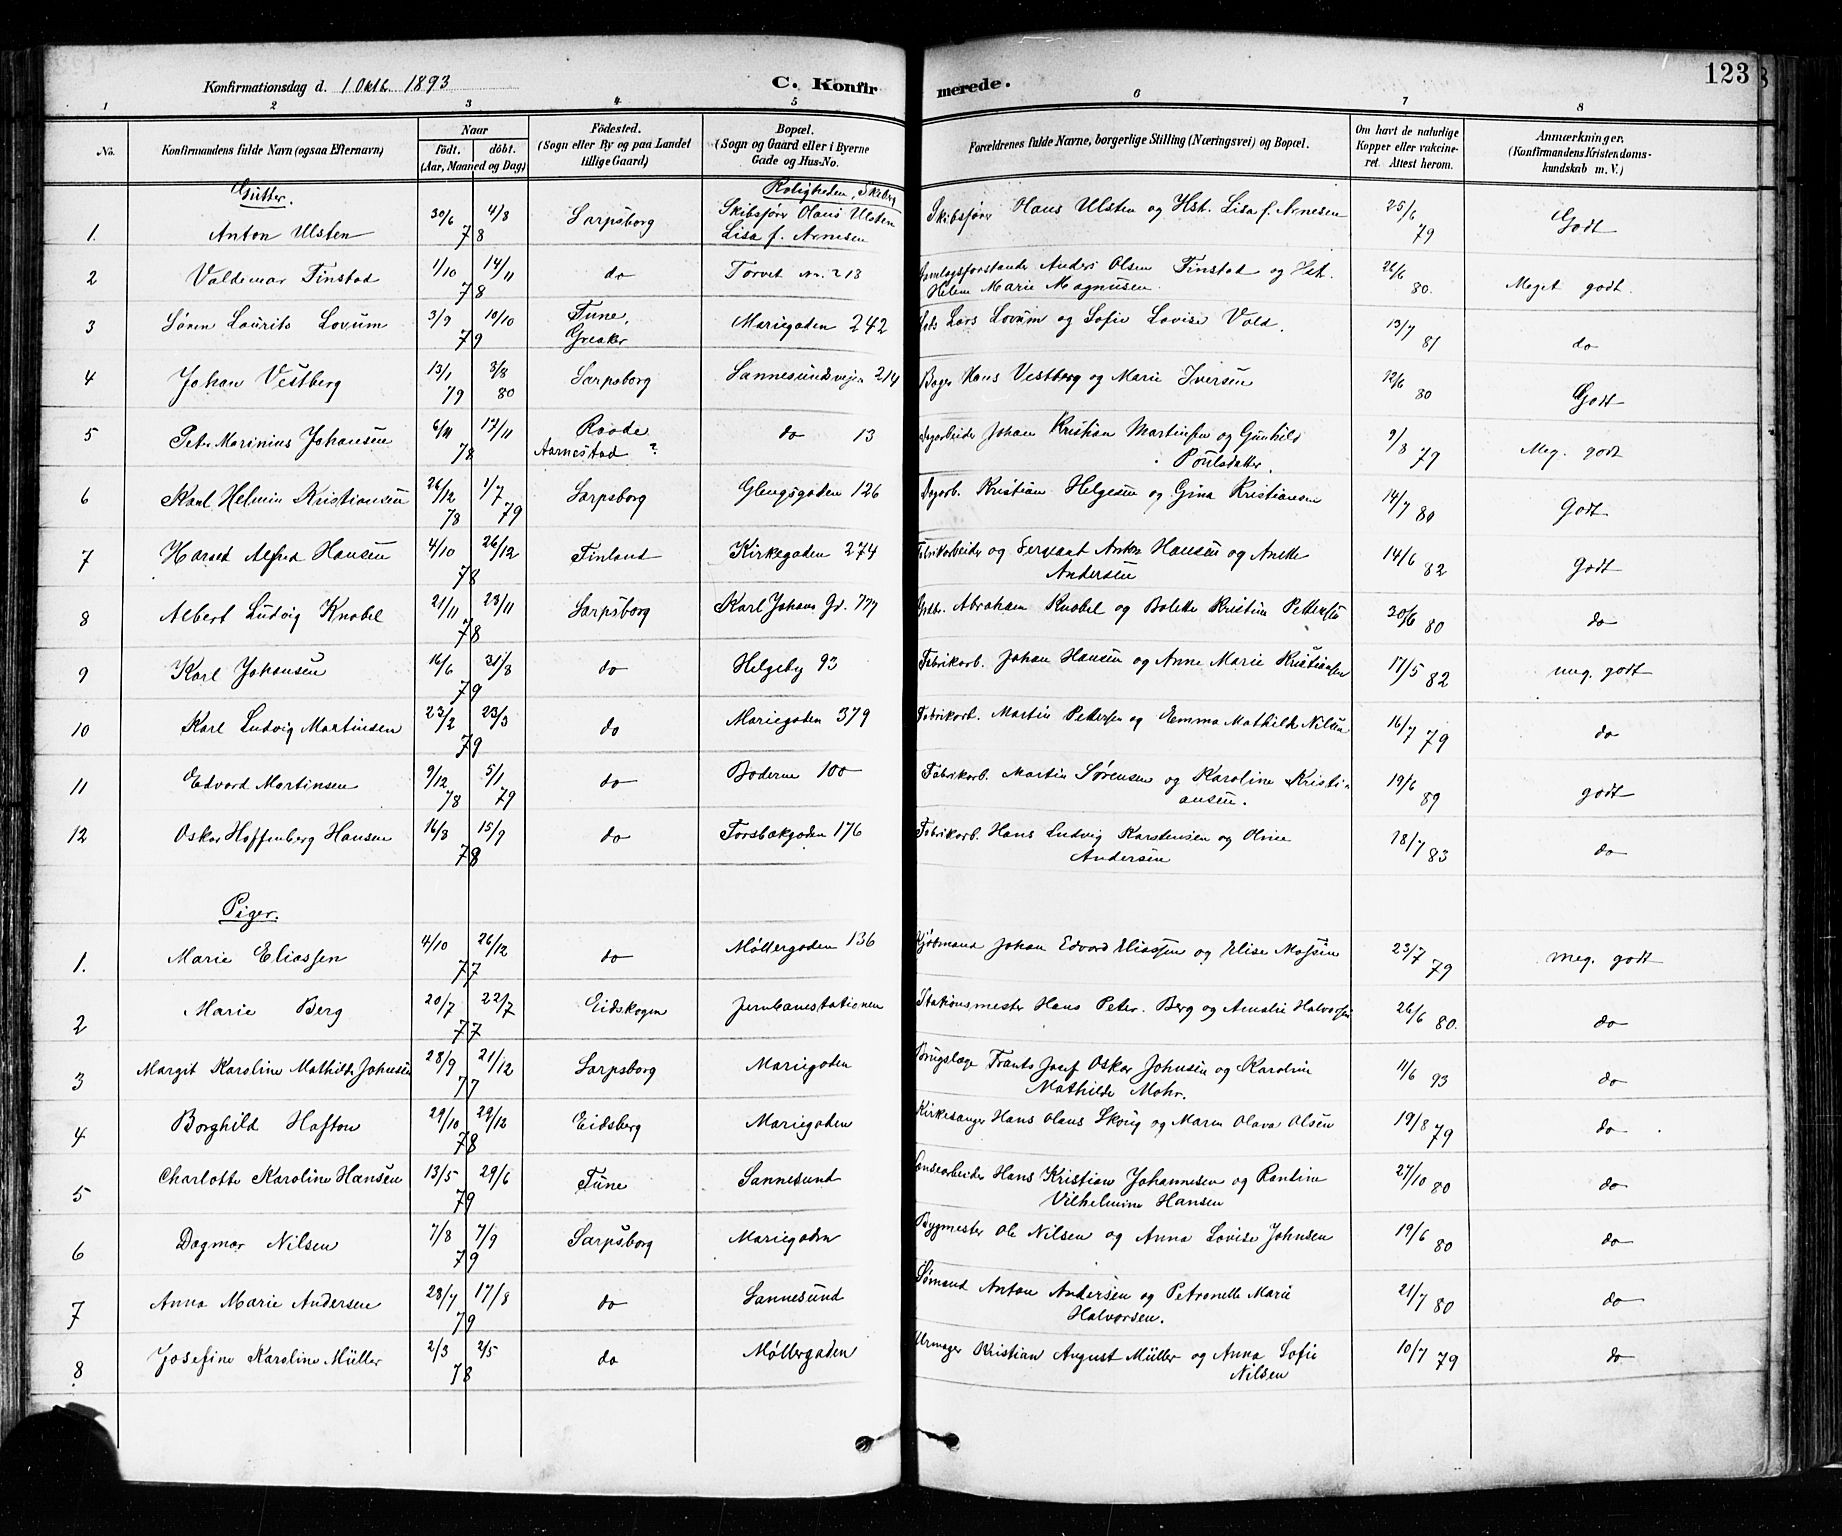 123
Konfirmationsdag d. 1 Oktb. 1893
C. Konfirmerede.
1 2 3 4 5 6 7 8
No.
Konfirmandens fulde Navn (ogsaa Efternavn)
Naar
født. døbt.
(Aar, Maaned og Dag)
Fødested.
(Sogn eller By og paa Landet tillige Gaard)
Bopæl.
(Sogn og Gaard eller i Byerne Gade og Hus-No.
Forældrenes fulde Navne, borgerlige Stilling (Næringsvei) og Bopæl.
Om havt de naturlige Kopper eller vaccineret. Attest herom.
Anmærkninger.
(Konfirmandens Kristendomskundskab m. V.)
Gutter.
1. Anton Ulsten 30/6 4/8 78 Sarpsborg Roligheden, Skeberg Skibsfører Olaus Ulsten Lisa f. Arnesen Skibsfører Olaus Ulsten og Hst. Lisa f. Arnesen 25/6 79 Godt
2 Valdemar Finstad 1/10 14/11 78 do Torvet No. 213 Anders Olsen Finstad og Hst. Helene Marie Magnusen. 26/6 80. Meget godt.
3 Søren Laurits Lovum 3/9 10/10 79 Tune, Greaker Mariegaden 242 Lars Lovum og Sofie Lovise Vold. 13/7 81 do
4 Johan Vestberg 13/1 79 3/8 80 Sarpsborg Sannesundsvejen 214 Bager Hans Vestberg og Marie Iversen 12/6 80 Godt
5 Peter Marinius Johansen 6/11 17/11 78 Raade Aarnestad ? do 13 Dagarbeider Johan Kristian Martinsen og Gunhild Poulsdatter. 9/8 79 Meg. godt
6 Karl Helmin Kristiansen 26/12 78 1/7 79 Sarpsborg Glengsgaden 126 Dagarb. Kristian Helgesen og Gina Kristiansen 14/7 80 Godt
7 Harald Alfred Hansen 4/10 26/12 78 Finland Kirkegaden 274 Fabrikarbeider og Sergeant Anton Hansen og Anette Andersen 14/6 82 Godt
8 Albert Ludvig Knobel 21/11 23/11 78 Sarpsborg Karl Johans Gd. 777 Abraham Knobel og Bolette Kristine Pettersen 30/6 80 do
9 Karl Johansen 16/6 31/8 79 do Helgeby 93 Fabrikarb. Johan Hansen og Anne Marie Kristiansen 17/5 82 meg. godt
10 Karl Ludvig Martinsen 23/2 23/3 79 do Mariegaden 379 Fabrikarb. Martin Pettersen og Emma Mathilde Nilsen 16/7 79 do
11 Edvard Martinsen 9/12 78 5/1 79 do Boderne 100 Fabrikarb. Martin Sørensen og Karoline Kristiansen. 19/6 89 godt
12 Oskar Hoffenberg Hansen 16/8 15/9 78 do Torsbækgaden 176 Fabrikarb. Hans Ludvig Karstensen og Oline Andersen 18/7 83 do
Piger.
1. Marie Eliassen 4/10 26/12 77 do Møllergaden 136 Kjøbmand Johan Edvard Eliassen og Elise Mossin 23/7 79 meg. godt
2 Marie Berg 20/7 22/7 77 Eidskogen Jernbanestationen Stationsmester Hans Peter. Berg og Amalie Halvorsen 26/6 80. do
3 Margit Karoline Mathilde Johnsen 28/9 21/12 77 Sarpsborg Mariegaden Brugslæge Frants Josef Oskar Johnsen og Karoline Mathilde Mohr. 11/6 93 do
4 Borghild Hafton 29/10 29/12 78 Eidsberg Mariegaden Kirkesanger Hans Olaus Skoug og Maren Olava Olsen 19/8 79 do
5 Charlotte Karoline Hansen 13/5 29/6 79 Tune Sannesund Lensearbeider Hans Kristian Johannesen og Pantine Vilhelmine Hansen 27/10 80 do
6 Dagmar Nilsen 7/8 7/9 79 Sarpsborg Mariegaden Bygmester Ole Nilsen og Anna Lovise Johnsen 19/6 80 do
7 Anna Marie Andersen 28/7 17/8 79 do Sannesund Sømand Anton Andersen og Petronelle Marie Halvorsen. 21/7 80 do
8 Josefine Karoline Müller 2/3 2/5 78 do Møllergaden Urmager Kristian August Müller og Anna Sofie Nilsen 10/7 79 do